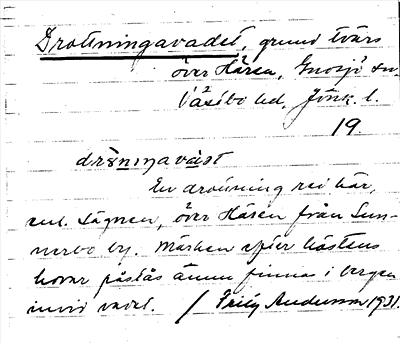 Drottningavadet, grund tvärs
över Hären, Gnosjö sn.
Västbo hd, Jönk. l.
19.
En drottning red här,
enl. sägnen, över Hären från Sun-
nerbo by. Märken efter hästens
hovar påstås ännu finnas i bergen
invid vadet. / Frity Andersson 1931.